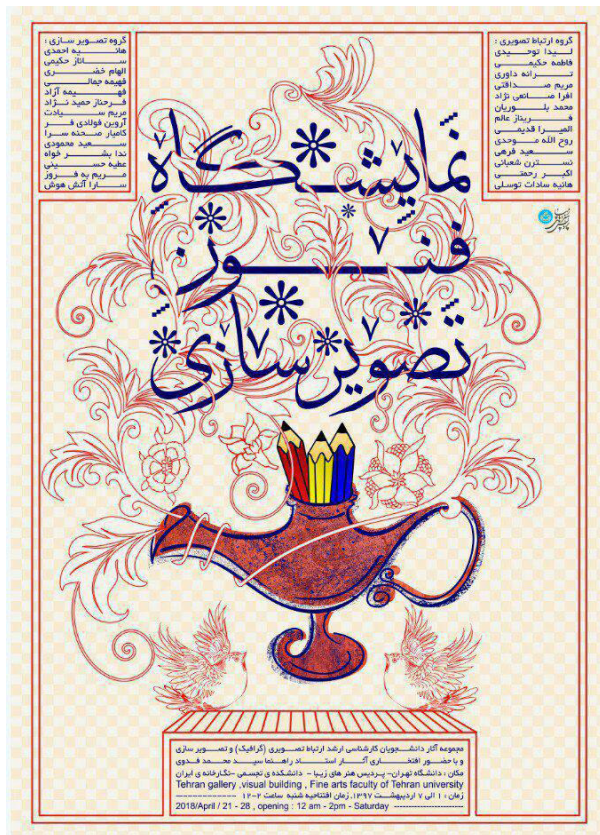 گروه ارتباط تصویری :
لیدا توحیدی
فاطمه حکیمی
ترانه داوری
مریم صداقتی
افرا صانعی نژاد
محمد بلوریان
فریناز عالم
المیرا قدیمی
روح الله موحدی
سعید فرهی
نسترن شعبانی
اکبر رحمتی
هانیه سادات توسلی
گروه تصویر سازی :
هانیه احمدی
ساناز حکیمی
الهام خضری
فهیمه جمالی
فهیمه آزاد
فرحناز حمید نژاد
مریم سیادت
آروین فولادی فر
کامیار صحنه سرا
سعید محمودی
ندا بشر خواه
عطیه حسینی
مریم به فروز
سارا آتش هوش
نمایشگاه
فنون
تصویرسازی
مجموعه آثار دانشجویان کارشناسی ارشد ارتباط تصویری (گرافیک) و تصویر سازی
و با حضور افتخاری آثار استاد راهنما سید محمد فدوی
مکان : دانشگاه تهران- پردیس هنر های زیبا - دانشکده ی تجسمی -نگارخانه ی ایران
Tehran gallery ,visual building , Fine arts faculty of Tehran university
زمان : ۱ الی ۷ اردیبهشت ۱۳۹۷. زمان افتتاحیه شنبه ساعت ۲-۱۲
2018/April / 21 - 28 , opening : 12 am - 2pm - Saturday